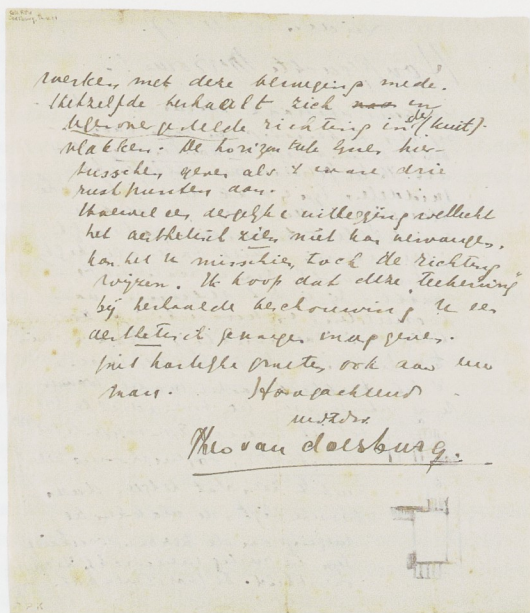 werken met deze beweging mede.
Hetzelfde herhaalt zich in
tegenovergestelde richting in de (kuit)
vlakken. De horizontale lijnen hier-
tusschen geven als 't ware drie
rustpunten aan.
Hoewel een dergelijke uitlegging wellicht
het aesthetisch zien niet kan vervangen,
kan het U misschien toch de richting
wijzen. Ik hoop dat deze "teekening"
bij herhaalde beschouwing U een
aesthetisch genoegen moge geven.
Met hartelijke groeten ook aan uw
man. Hoogachtend
Theo van Doesburg.